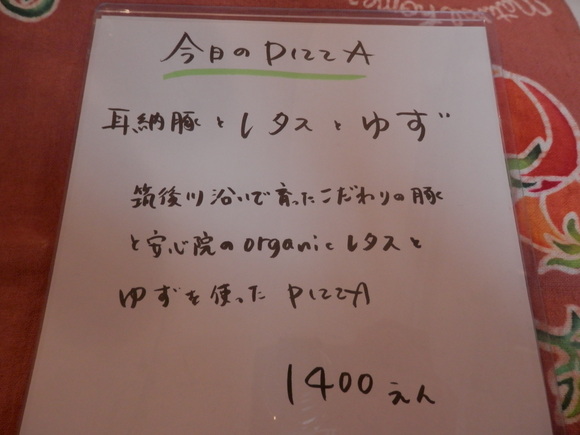 今日のPIZZA
耳納豚とレタスとゆず
筑後川沿いで育ったこだわりの豚
と安心院のorganicレタスと
ゆずを使った PIZZA
1400えん